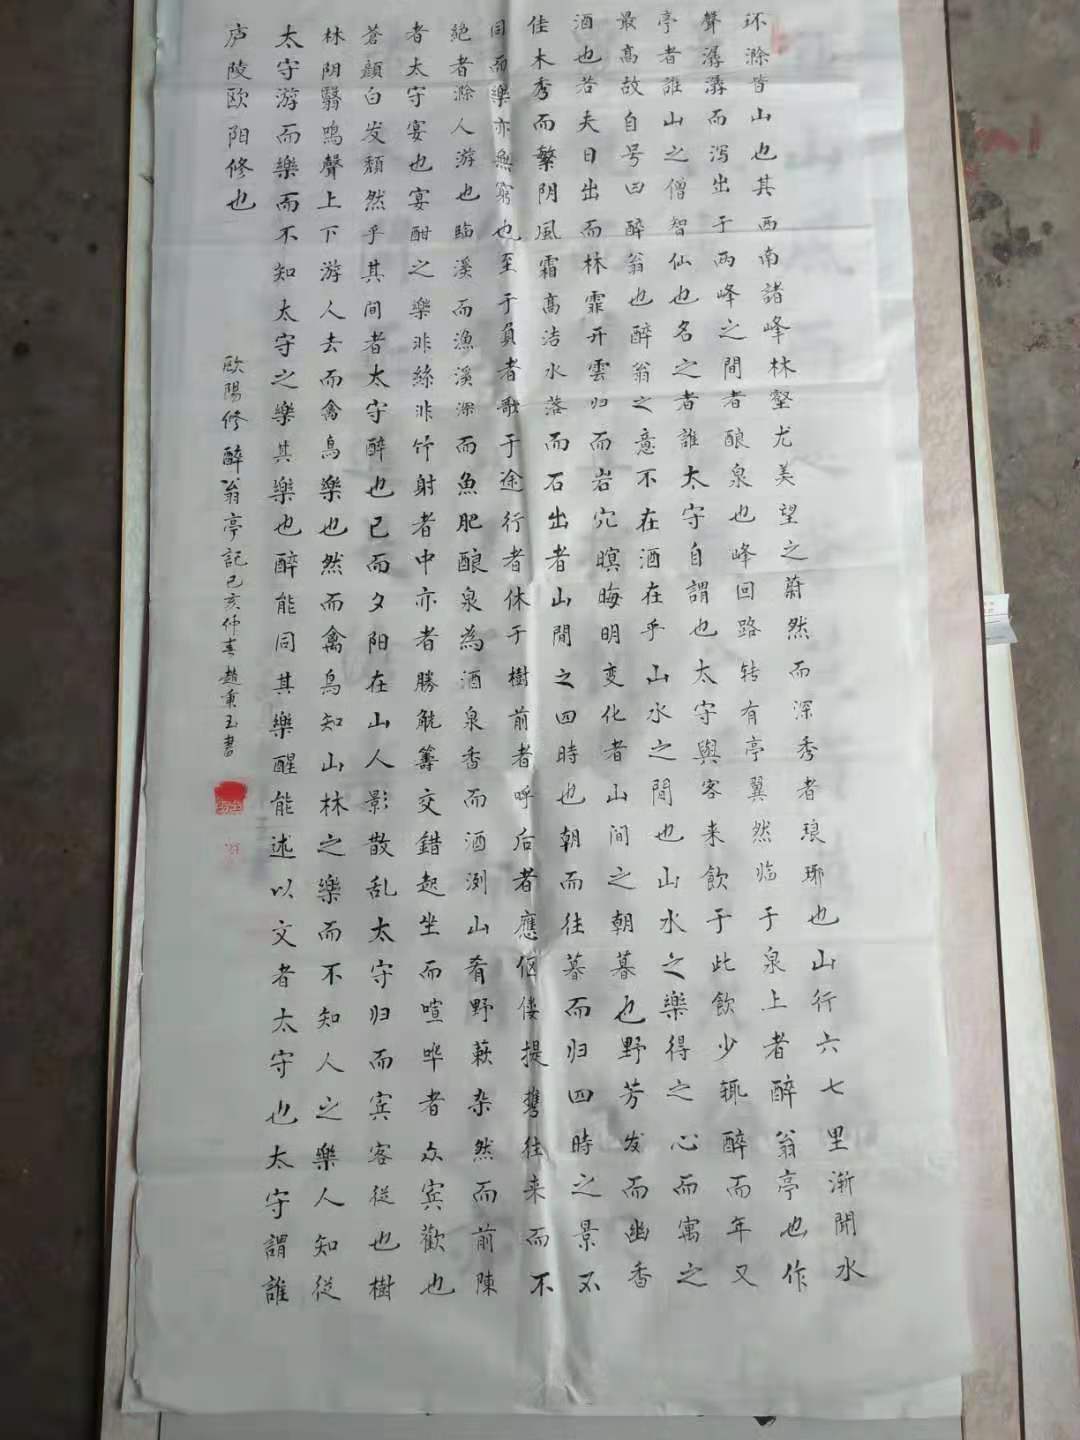 环滁皆山也其西南諸峰林壑尤美望之蔚然而深秀者琅琊也山行六七里渐聞水
聲潺潺而泻出于两峰之間者酿泉也峰回路转有亭翼然临于泉上者醉翁亭也作
亭者誰山之僧智仙也名之者誰太守自謂也太守與客来飲于此飲少辄醉而年又
最高故自号曰醉翁也醉翁之意不在酒在乎山水之間也山水之樂得之心而寓之
酒也若夫日出而林霏开雲归而岩穴暝晦明变化者山间之朝暮也野芳发而幽香
佳木秀而繁阴風霜高洁水落而石出者山間之四時也朝而往暮而归四時之景不
同而樂亦無窮也至于負者歌于途行者休于樹前者呼后者應伛偻提携往来而不
絶者滁人游也臨溪而漁溪深而魚肥酿泉為酒泉香而酒洌山肴野蔌杂然而前陳
者太守宴也宴酣之樂非絲非竹射者中亦者勝觥籌交錯起坐而喧哗者众宾歡也
蒼顔白发頹然乎其间者太守醉也已而夕阳在山人影散乱太守归而宾客從也樹
林阴翳鳴聲上下游人去而禽鳥樂也然而禽鳥知山林之樂而不知人之樂人知從
太守游而樂而不知太守之樂其樂也醉能同其樂醒能述以文者太守也太守謂誰
庐陵欧阳修也
歐陽修醉翁亭記己亥仲春趙秉玉書